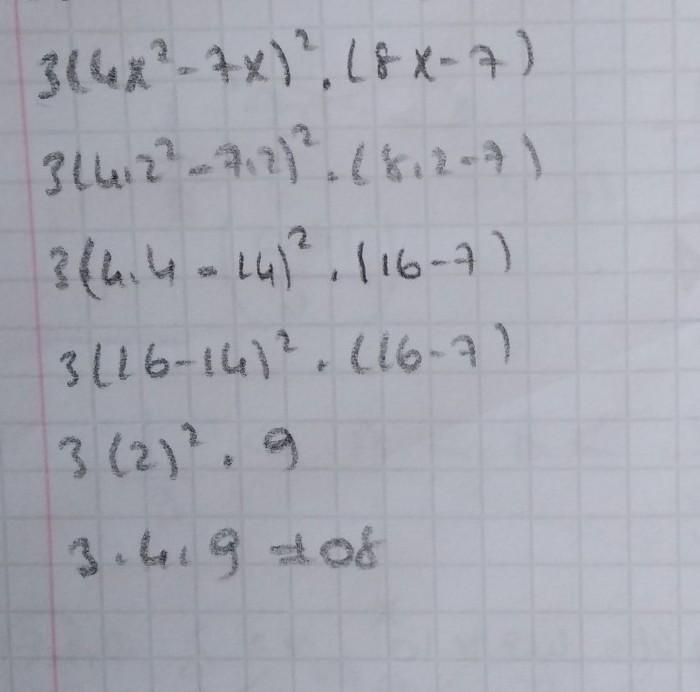 3(4x²-7x)².(8x-7)
3(4.2²-7.2)².(8.2-7)
3(4.4-14)².(16-7)
3(16-14)².(16-7)
3(2)².9
3.4.9=108